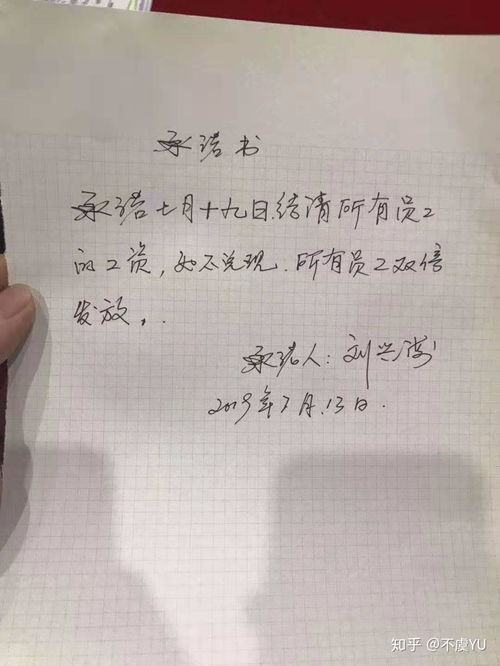 承诺书
承诺七月十九日结清所有员工
的工资,如不兑现.所有员工双倍
发放。
承诺人:刘兴
2019年7月.13日.
知乎 @不虞YU